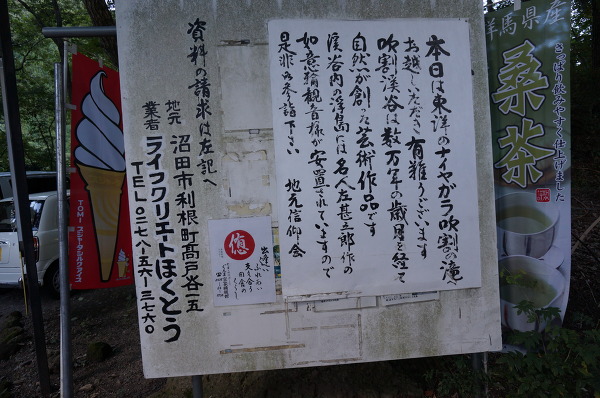 本日は東洋のナイヤガラ吹割の滝へ
お越しいただき有難うございます
吹割渓谷は数万年の歳月を経て
自然が創った芸術作品です
渓谷内の浮島には名人左甚五郎作の
如意輪観音様が安置されていますので
是非御参詣下さい 地元信仰会
資料の請求は左記へ
地元 沼田市利根町高戸谷一五
業者 ライフクリエートほくとう
TEL〇二七八-五六-三七六〇
群馬県産
桑茶
さっぱり飲みやすく仕上げました
TOMI